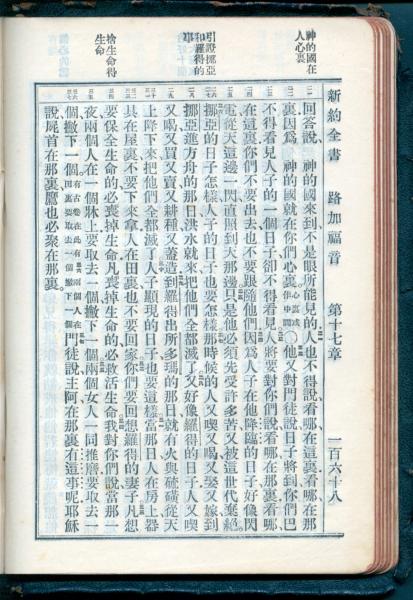 新約全書　路加福音　第十七章　一百六十八
神的國在
人心裏
引證挪亞
和羅得的
事
捨生命得
生命
回答說　神的國來到不是眼所能見的人也不得說看哪在這裏看哪在那
裏因爲　神的國就在你們心裏心裏或作中間○他又對門徒說日子將到你們巴
不得看見人子的一個日子卻不得看見人將要對你們說看哪在那裏看哪
在這裏你們不要出去也不要跟隨他們因爲人子在他降臨的日子好像閃
電從天這邊一閃直照到天那邊只是他必須先受許多苦又被這世代棄絕
挪亞的日子怎樣人子的日子也要怎樣那時候的人又喫又喝又娶又嫁到
挪亞進方舟的那日洪水就來把他們全都滅了又好像羅得的日子人又喫
又喝又買又賣又耕種又蓋造到羅得出所多瑪的那日就有火與硫磺從天
上降下來把他們全都滅了人子顯現的日子也要這樣當那日人在房上器
具在屋裏不要下來拿人在田裏也不要回家你們要回想羅得的妻子凡想
要保全生命的必喪掉生命凡喪掉生命的必救活生命我對你們說當那一
夜兩個人在一個牀上要取去一個撇下一個兩個女人一同推磨要取去一
個撇下一個有古卷在此有兩個人在田裏要取去一個撇下一個門徒說主阿在那裏有這事呢耶穌
說屍首在那裏鷹也必聚在那裏。